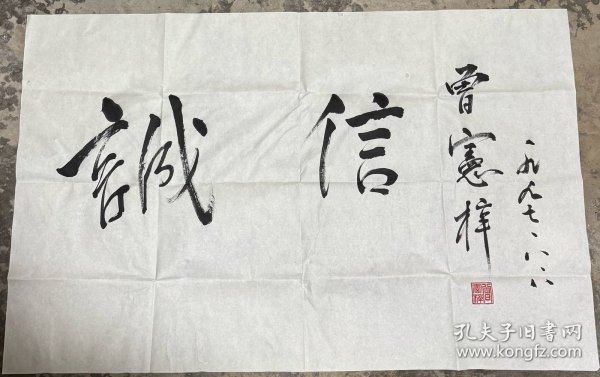 誠信
曾憲梓
一九九七、八、八
孔夫子旧书网
www.kongfz.com